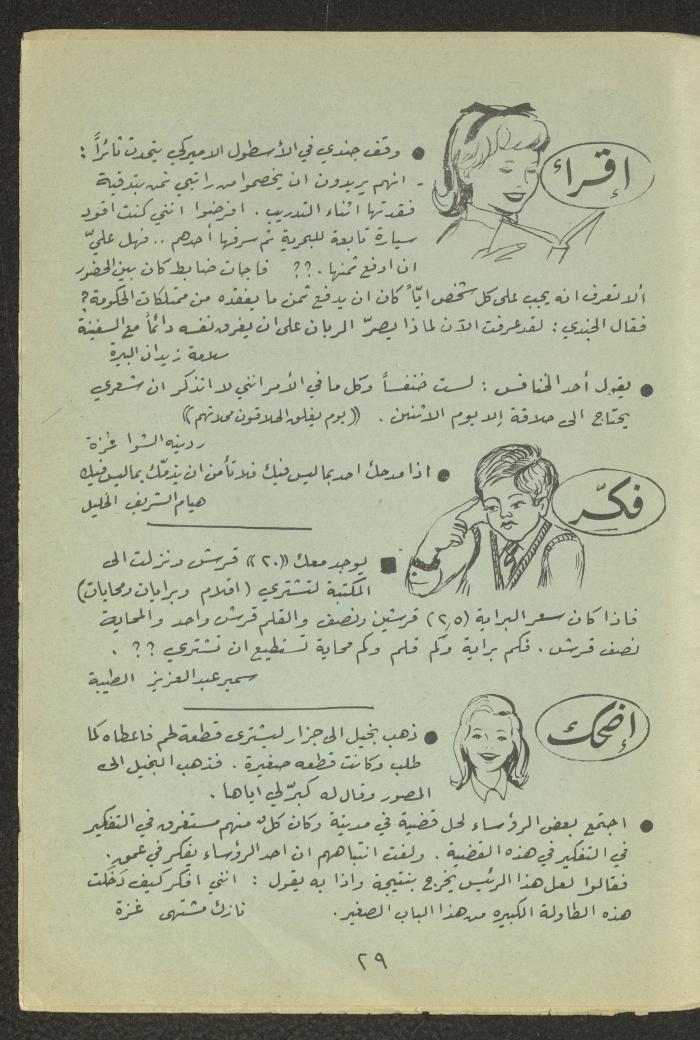 إقراء
● وقف جندي في الأسطول الاميركي يتحدث ثائراً :
- انهم يريدون ان يخصموا من راتبي ثمن بندقية
فقدتها اثناء التدريب . افرضوا انني كنت اقود
سيارة تابعة للبحرية ثم سرقها أحدهم .. فهل عليّ
ان ادفع ثمنها .?? فاجاب ضابط كان بين الحضور
ألا تعرف انه يجب على كل شخص ايّاً كان ان يدفع ثمن ما يفقده من ممتلكات الحكومة؟
فقال الجندي : لقد عرفت الآن لماذا يصرّ الربان على ان يغرق نفسه دائماً مع السفينة
سلامة زيدان البيرة
● يقول أحد الخنافس : لست خنفساً وكل ما في الأمر انني لا اتذكر ان شعري
يحتاج الى حلاقة إلا يوم الاثنين . ((يوم يغلق الحلاقون محلاتهم))
ردينه الشوا غزة
فكّر
● اذا مدحك احد بما ليس فيك فلا تأمن ان يذمّك بما ليس فيك
هيام الشريف الخليل
■ يوجد معك ((٢٠)) قرش ونزلت الى
المكتبة لتشتري (اقلام وبرايات ومحايات)
فاذا كان سعر البراية (٢,٥) قرشين ونصف والقلم قرش واحد والمحاية
نصف قرش . فكم براية وكم قلم وكم محاية تستطيع ان تشتري ?? .
سمير عبدالعزيز الطيبة
إضحك
● ذهب بخيل الى جزار ليشتري قطعة لحم فاعطاه كما
طلب وكانت قطعه صغيرة . فذهب البخيل الى
المصور وقال له كبرّلي اياها .
● اجتمع بعض الرؤساء لحل قضية في مدينة وكان كل منهم مستغرق في التفكير
في التفكير في هذه القضية . ولفت انتباههم ان احد الرؤساء يفكر في عمق.
فقالوا لعل هذا الرئيس يخرج بنتيجة واذا به يقول : انني افكر كيف دَخَلت
هذه الطاولة الكبيره من هذا الباب الصغير. نازك مشتهى غزة
٢٩